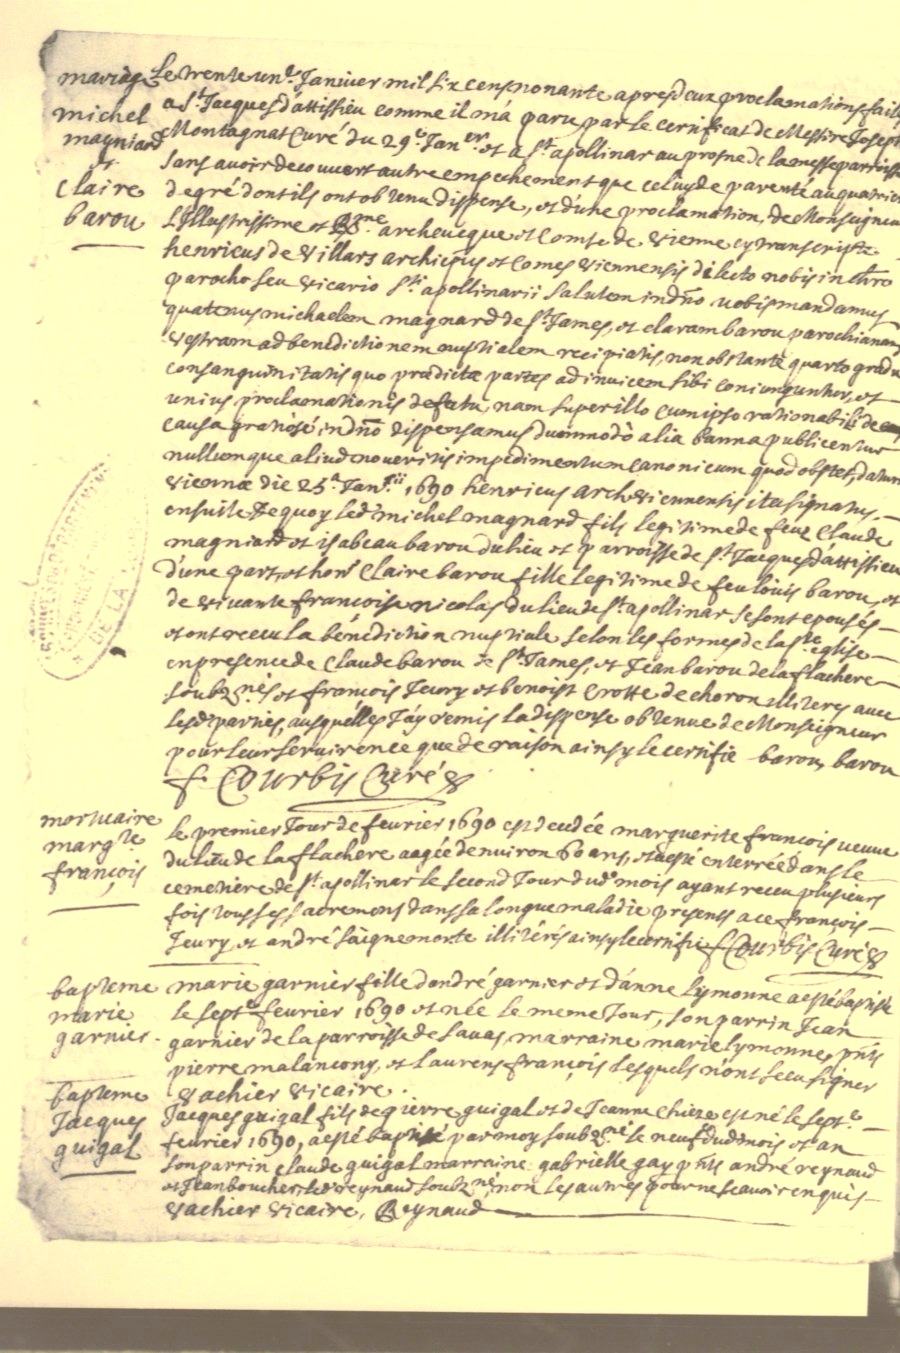 mariage
michel
magniard
et
Claire
barou
Le trente un.e Janvier mil six cens nonante apres deux proclamations faites
a S.t Jacques d'attissieu comme il m'a paru par le certificat de Messire Joseph
Montagnat Curé du 29.e Jan.er et a S.t apollinar au prosne de la messe parroissi
sans avoir decouvert autre empechement que celuy de parenté au quatriem
degré dont ils ont obtenu dispense, et d'une proclamation, de Monseigneur
L'Illustrissime et R.me archevesque et Comte de vienne cy transcripte
henricus de villars archiepûs et Comes viennensis dilecto nobis in chrõ
parocho seu vicario S.ti apollinarii salutem in dnõ vobis mandamus
quatenus michaelem magnard de S.t James, et claram barou parochianam
vestram ad benedictionem nuptialem recipiatis, non obstante quarto gradu
consanguinitatis quo prædictæ partes ad invicem sibi coniunguntur, et
unius proclamationis defectu, nam super illo cum ipso rationabili de
causa gratiosé in dnõ dispensamus dummodò alia banna publicentur
nullumque aliud noveritis impedimentum canonicum quod obstet, datum
viennæ die 25.a Jan.rii 1690 henricus arch. viennensis ita signatus,
ensuite de quoy led.t michel magnard fils legitime de feuz Claude
magniard et isabeau barou du lieu et parroisse de S.t Jacques d'attissieu
d'une part, et hon.e Claire barou fille legitime de feu loüis barou, et
de vivante françoise nicolas du lieu de S.t apollinar se sont epousés
et ont receu la bénédiction nuptiale selon les formes de la S.te eglise
en presence de Claude barou de S.t James, et Jean barou de la flachere
soubz.nés et francois Jeury et benoist Crotte de choron illiteres avec
lesd. parties, ausquelles J'ay remis la dispense obtenue de Monseigneur
pour leur servir en ce que de raison ainsy le certifie barou, barou
f. Courbis Curé
mortuaire
marg.te
françois
le premier Jour de fevrier 1690 est decedée marguerite françois veuve
du lieu de la flachere aagée d'environ 60 ans, et a esté enterrée dans le
cemetiere de S.t apollinar le second Jour dud. mois ayant receu plusieurs
fois tous ses sacremens dans sa longue maladie presents a ce françois
Jeury, et andré saignemorte illitérés ainsy le certifie f Courbis Curé
bapteme
marie
garnier
marie garnier fille d'andré garnier et d'anne lymonne a esté baptisée
le sept.e fevrier 1690 et née le meme Jour, son parrin Jean
garnier de la parroisse de savas, marraine marie lymonne, pn̄ts
pierre malancony, et laurens françois lesquels n'ont sceu signer
vachier vicaire.
bapteme
Jacques
guigal
Jacques guigal fils de pierre guigal et de Jeanne Chieze est né le sept.e
fevrier 1690, a esté baptisé par moy soubz.né le neuf dud. mois et an
son parrin Claude guigal marraine gabrielle gay pn̄ts andré reynaud
et Jean boucher, led. reynaud soubz.né, non les autres pour ne scavoir enquis
vachier vicaire, Reynaud